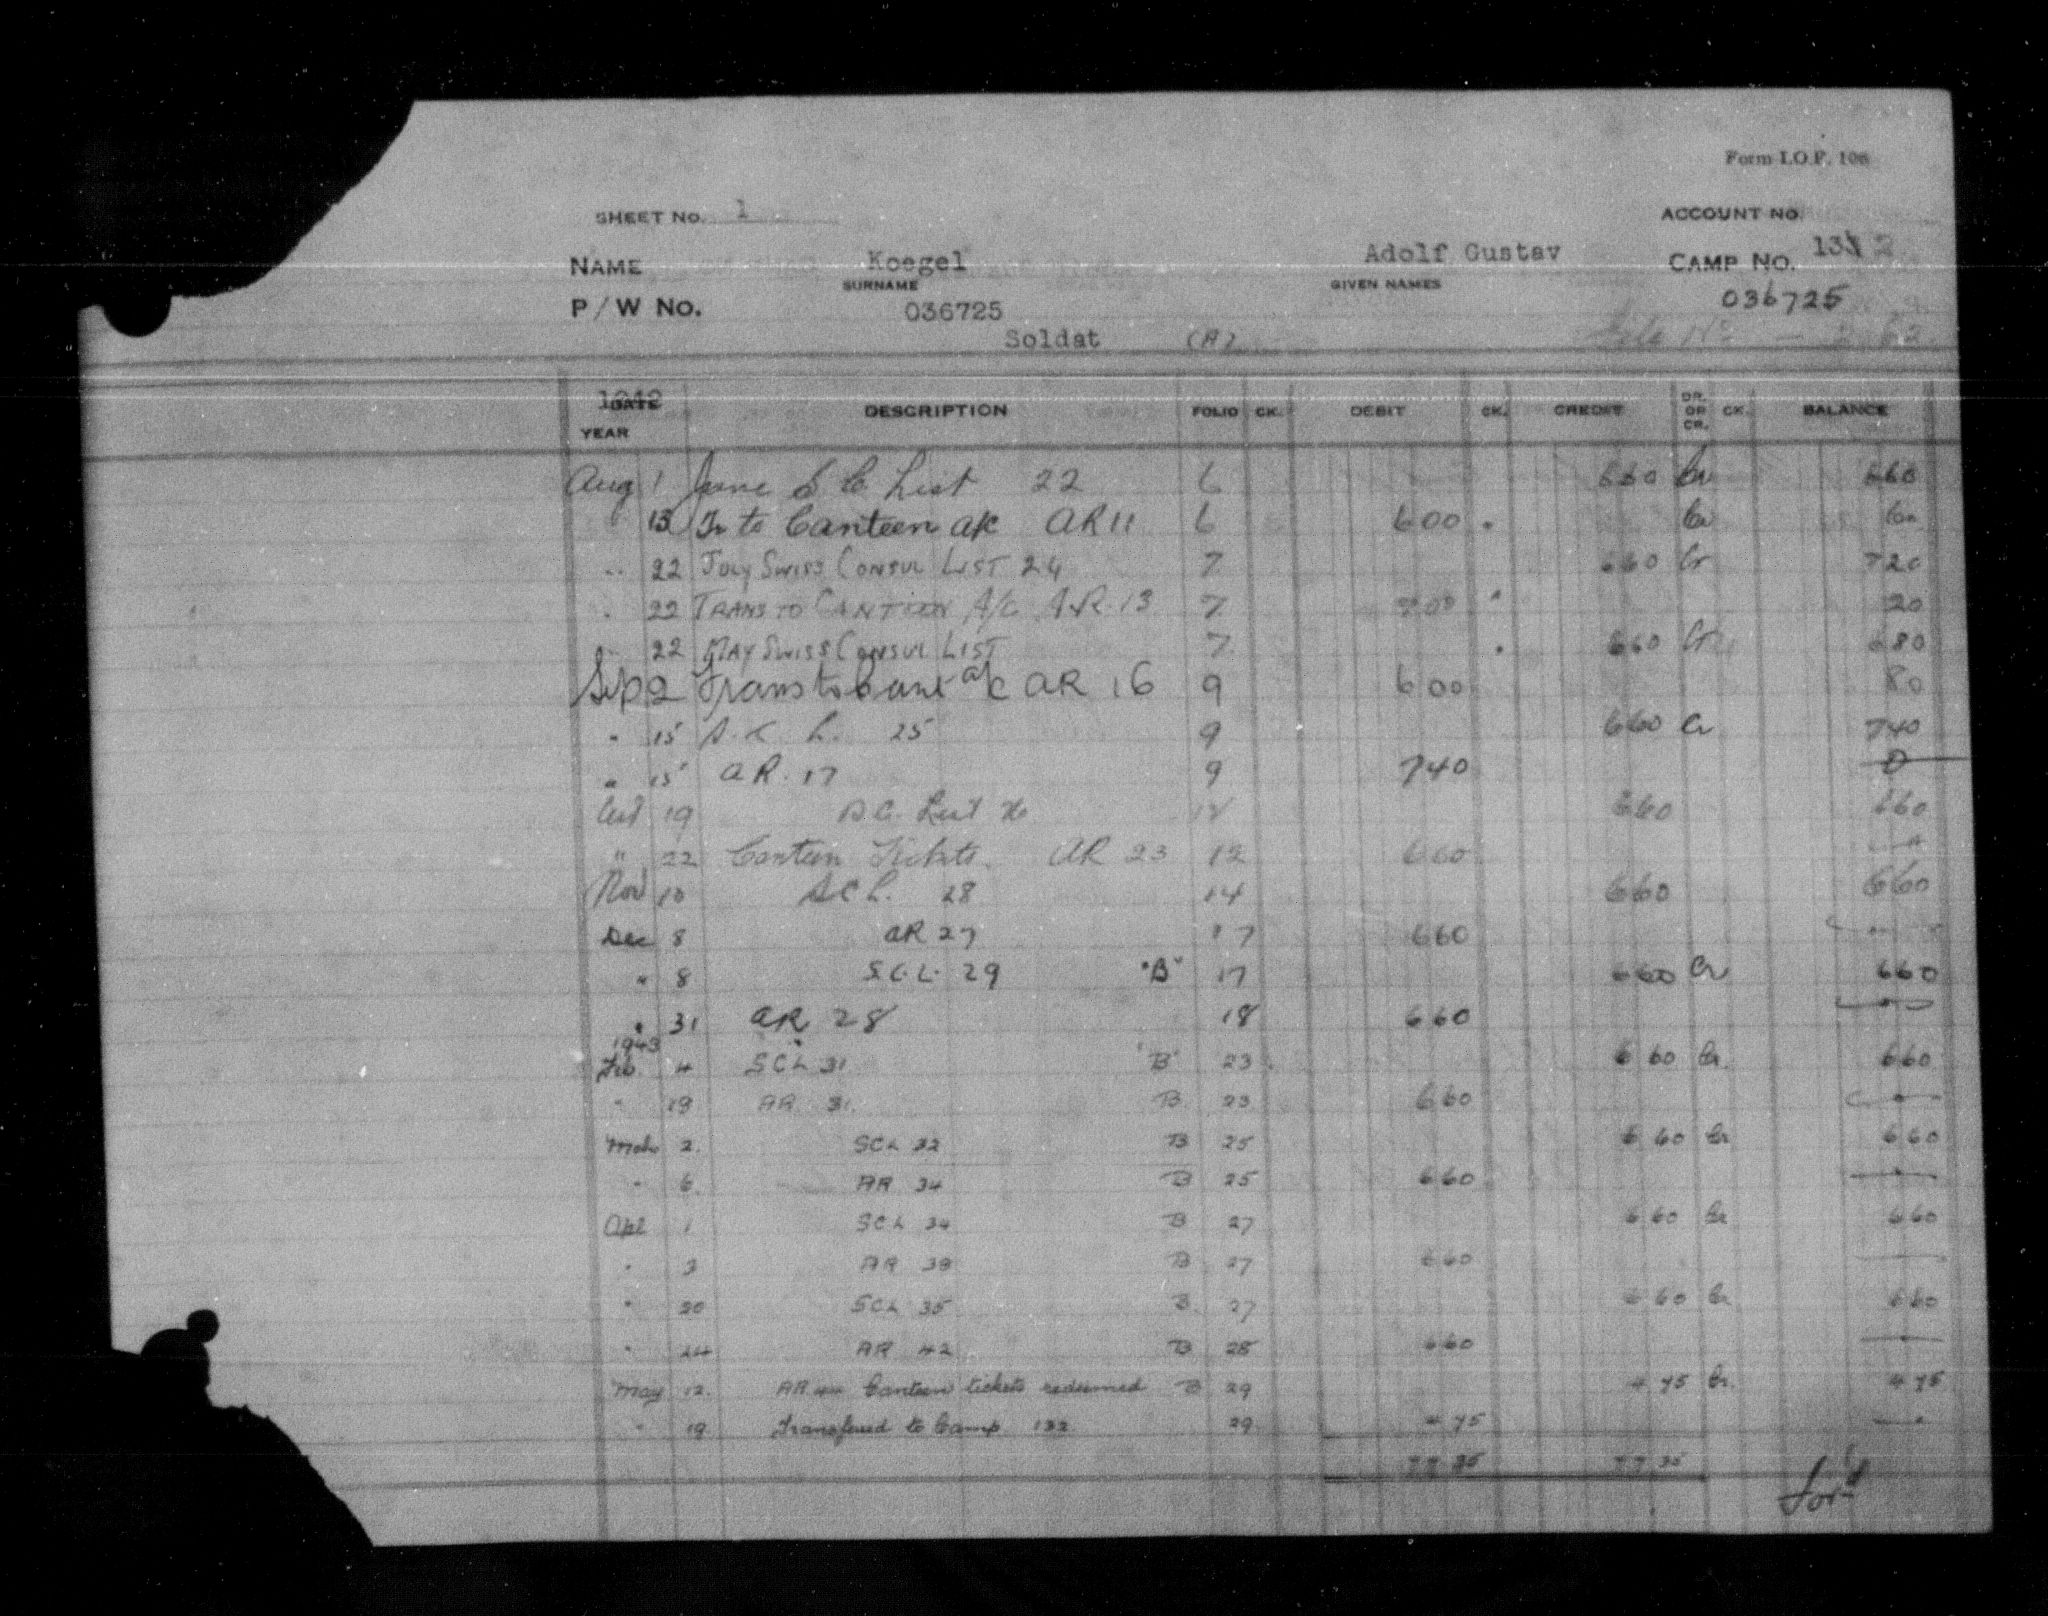 Form I.O.P. 106
SHEET No. 1
ACCOUNT NO.
NAME Koegel Adolf Gustav CAMP NO. 132
SURNAME GIVEN NAMES
P/W No. 036725 036725
Soldat (A)
1942
DATE YEAR DESCRIPTION FOLIO CK. DEBIT CK. CREDIT DR. OR CR. CK. BALANCE
Aug 1 June S C List 22 6 660 Cr 660
13 Tr to Canteen a/c AR 11 6 600 Cr 60
" 22 JULY SWISS CONSUL LIST 24 7 660 Cr 720
" 22 TRANS TO CANTEEN A/C A.R. 13 7 700 20
" 22 MAY SWISS CONSUL LIST 7 660 Cr 680
Sep 2 Trans to Cant a/c AR 16 9 600 80
" 15 S.C L. 25 9 660 Cr 740
" 15 AR. 17 9 740 0
Oct 19 S.C. List 12 660 660
" 22 Canteen Tickets. AR 23 12 660
Nov 10 SCL. 28 14 660 660
Dec 8 AR 27 17 660
" 8 S.C.L. 29 "B" 17 660 Cr 660
" 31 AR 28 18 660
1943
Feb 4 SCL 31 "B" 23 6 60 Cr. 660
" 19 AR 31 B 23 660
Mch 2. SCL 32 B 25 6 60 Cr 660
" 6. AR 34 B 25 660
Apl 1 SCL 34 B 27 6 60 Cr 660
" 3 AR 38 B 27 660
" 20 SCL 35 B. 27 6 60 Cr 660
" 24 AR 42 B 28 660
May 12. AR 44 Canteen tickets redeemed B 29 4 75 Cr. 4 75
" 19 Transferred to Camp 132 29 4 75
77 35 77 35
for'd